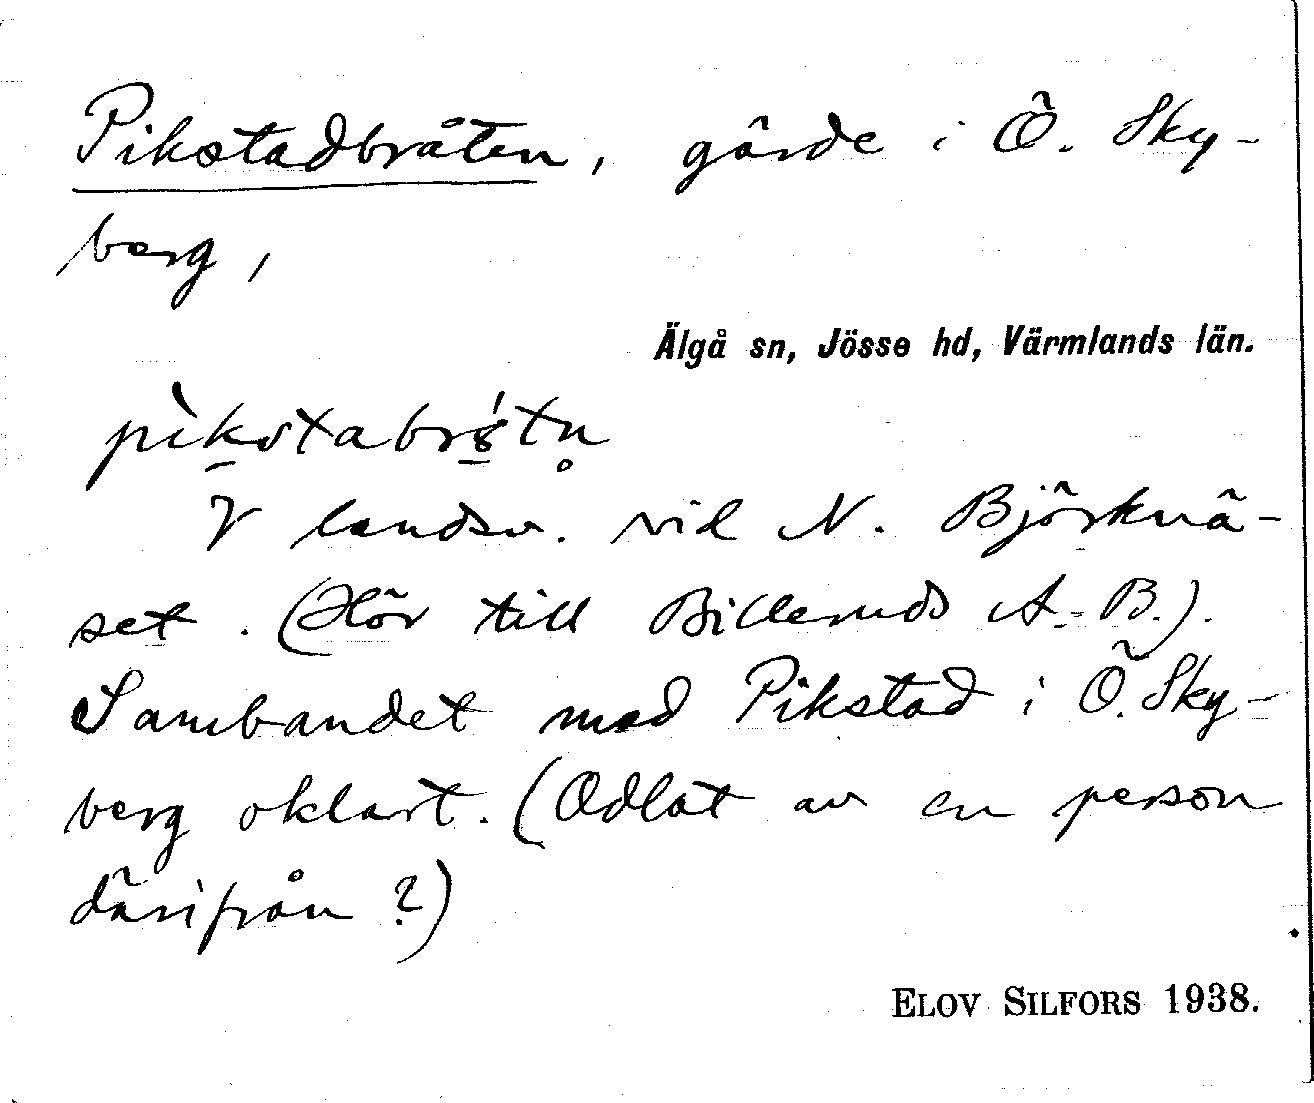 Pikstadbråten, gärde i Ö. Sky-
berg,
Älgå sn, Jösse hd, Värmlands län.
V landsv. vid N. Björknä-
set. (Hör till Billeruds A.-B.).
Sambandet med Pikstad i Ö. Sky-
berg oklart. (Odlat av en person
därifrån?)
ELOV SILFORS 1938.